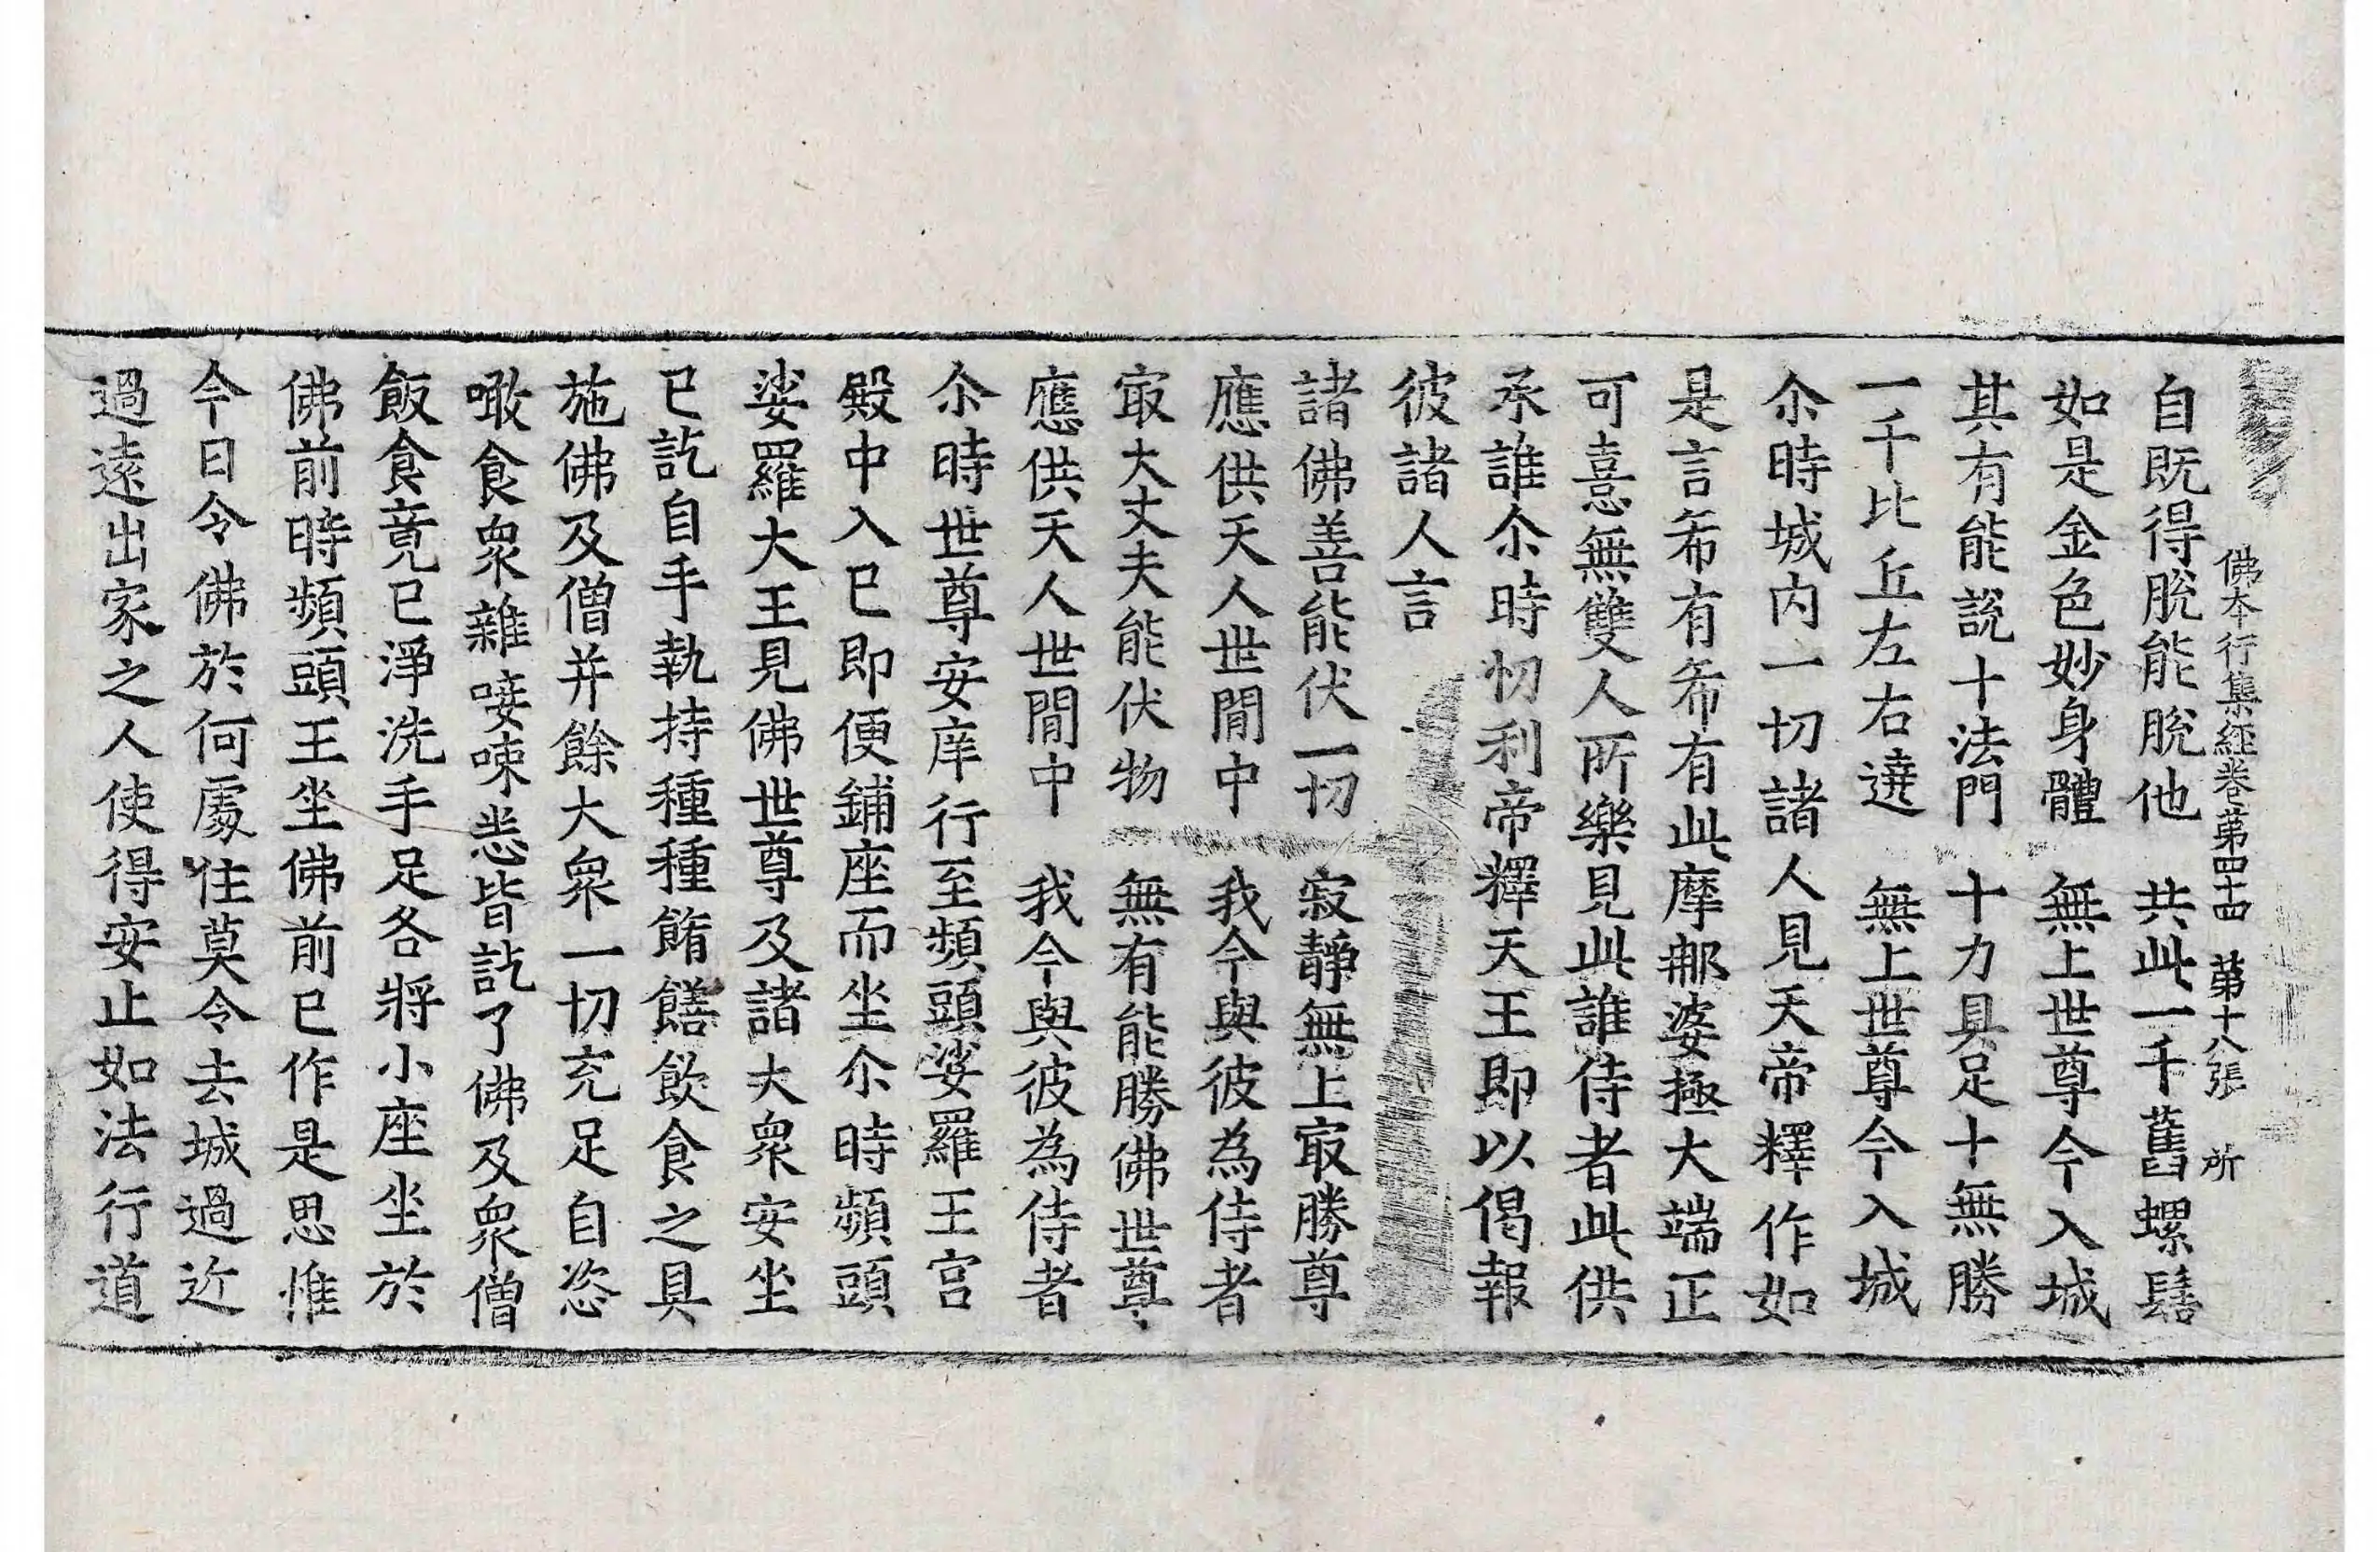 佛本行集經卷第四十四　第十八張　所
自既得脫能脫他　共此一千舊螺髻
如是金色妙身體　無上世尊今入城
其有能說十法門　十力具足十無勝
一千比丘左右遶　無上世尊今入城
尒時城内一切諸人見天帝釋作如
是言希有希有此摩那婆極大端正
可憙無雙人所樂見此誰侍者此供
承誰尒時忉利帝釋天王即以偈報
彼諸人言
諸佛善能伏一切　寂靜無上㝡勝尊
應供天人世閒中　我今與彼為侍者
㝡大丈夫能伏物　無有能勝佛世尊
應供天人世閒中　我今與彼為侍者
尒時世尊安庠行至頻頭娑羅王宫
殿中入已即便鋪座而坐尒時頻頭
娑羅大王見佛世尊及諸大衆安坐
已訖自手執持種種餚饍飲食之具
施佛及僧并餘大衆一切充足自恣
噉食衆雜唼㖨悉皆訖了佛及衆僧
飯食竟已淨洗手足各將小座坐於
佛前時頻頭王坐佛前已作是思惟
今日令佛於何處住莫令去城過近
過遠出家之人使得安止如法行道